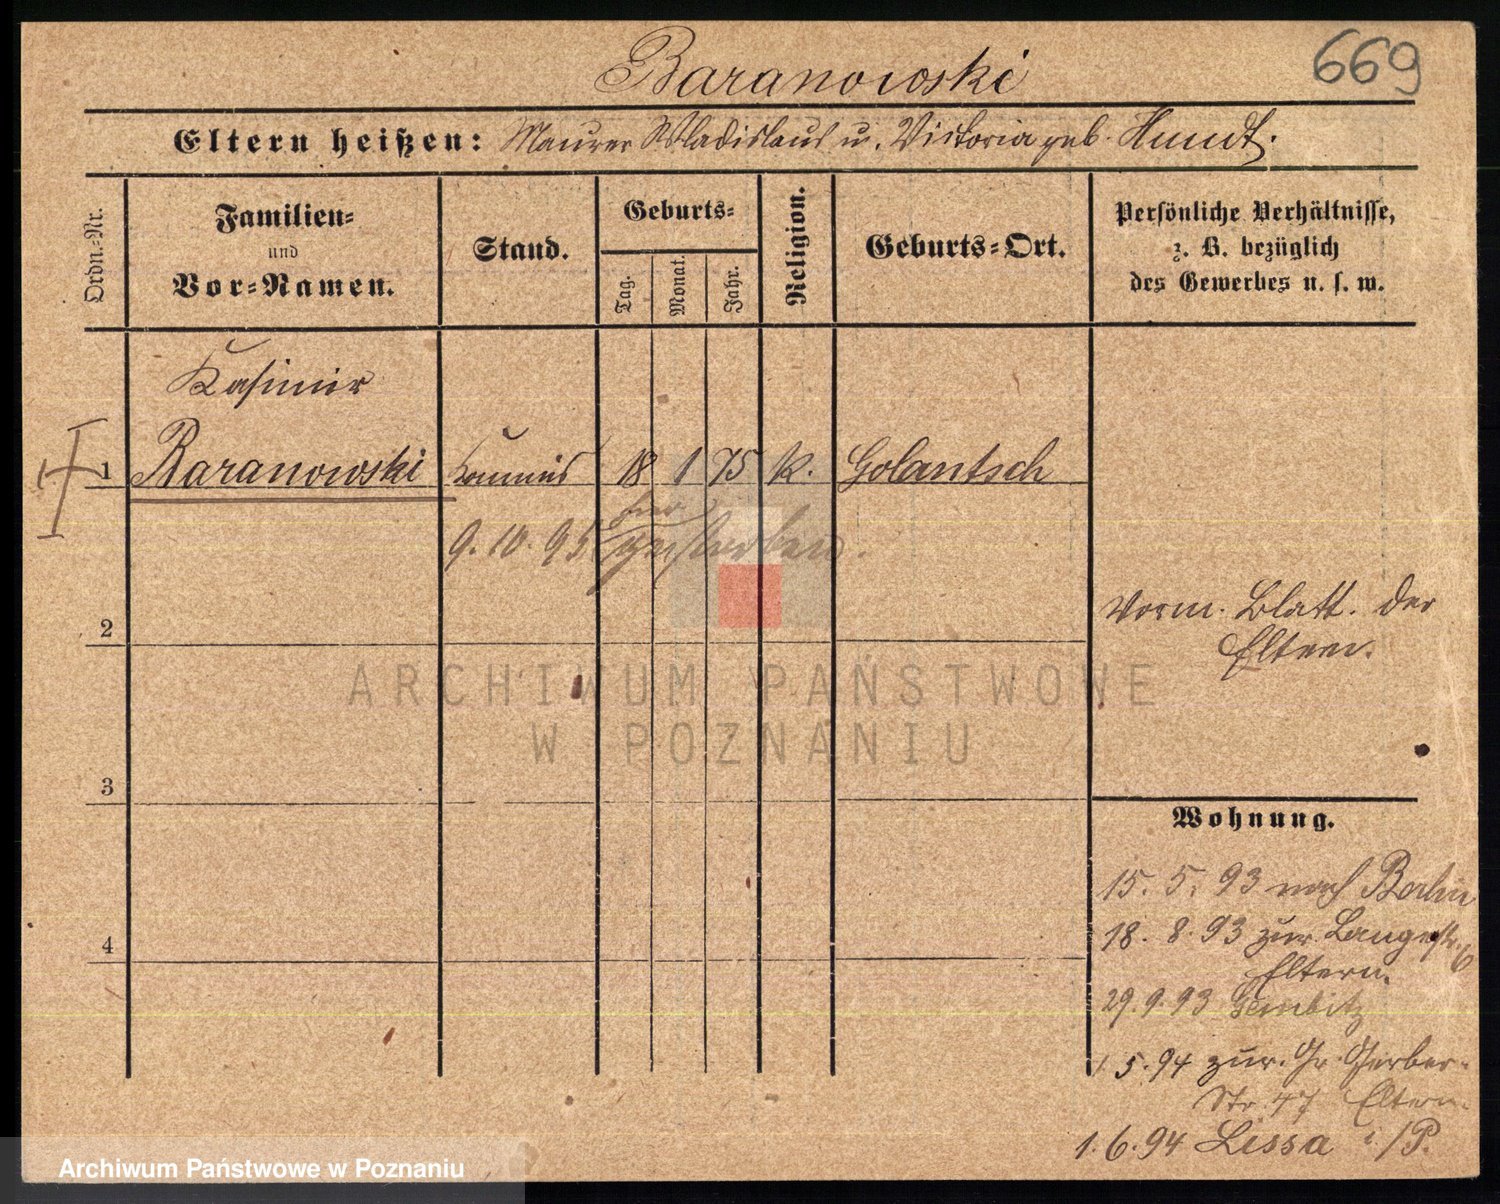 Baranowski
669
Eltern heißen: Maurer Wladislaus u. Victoria geb. Hundt.
Ordn.-Nr.
Familien-
und
Vor-Namen.
Stand.
Geburts-
Tag.
Monat.
Jahr.
Religion.
Geburts-Ort.
Persönliche Verhältnisse,
z. B. bezüglich
des Gewerbes u. s. w.
Kasimir
1 Baranowski Kommis 18 1 75 k. Golantsch
9. 10. 95 hier
gestorben.
2
Vorm. Blatt. der
Eltern.
ARCHIWUM PAŃSTWOWE
W POZNANIU
3
Wohnung.
15. 5. 93 nach Berlin
4
18. 8. 93 zur. Langestr. 6
Eltern.
29. 9. 93 Gembitz
1. 5. 94 zur. Gr. Gerber-
Str. 47 Eltern.
1. 6. 94 Lissa i/P.
Archiwum Państwowe w Poznaniu